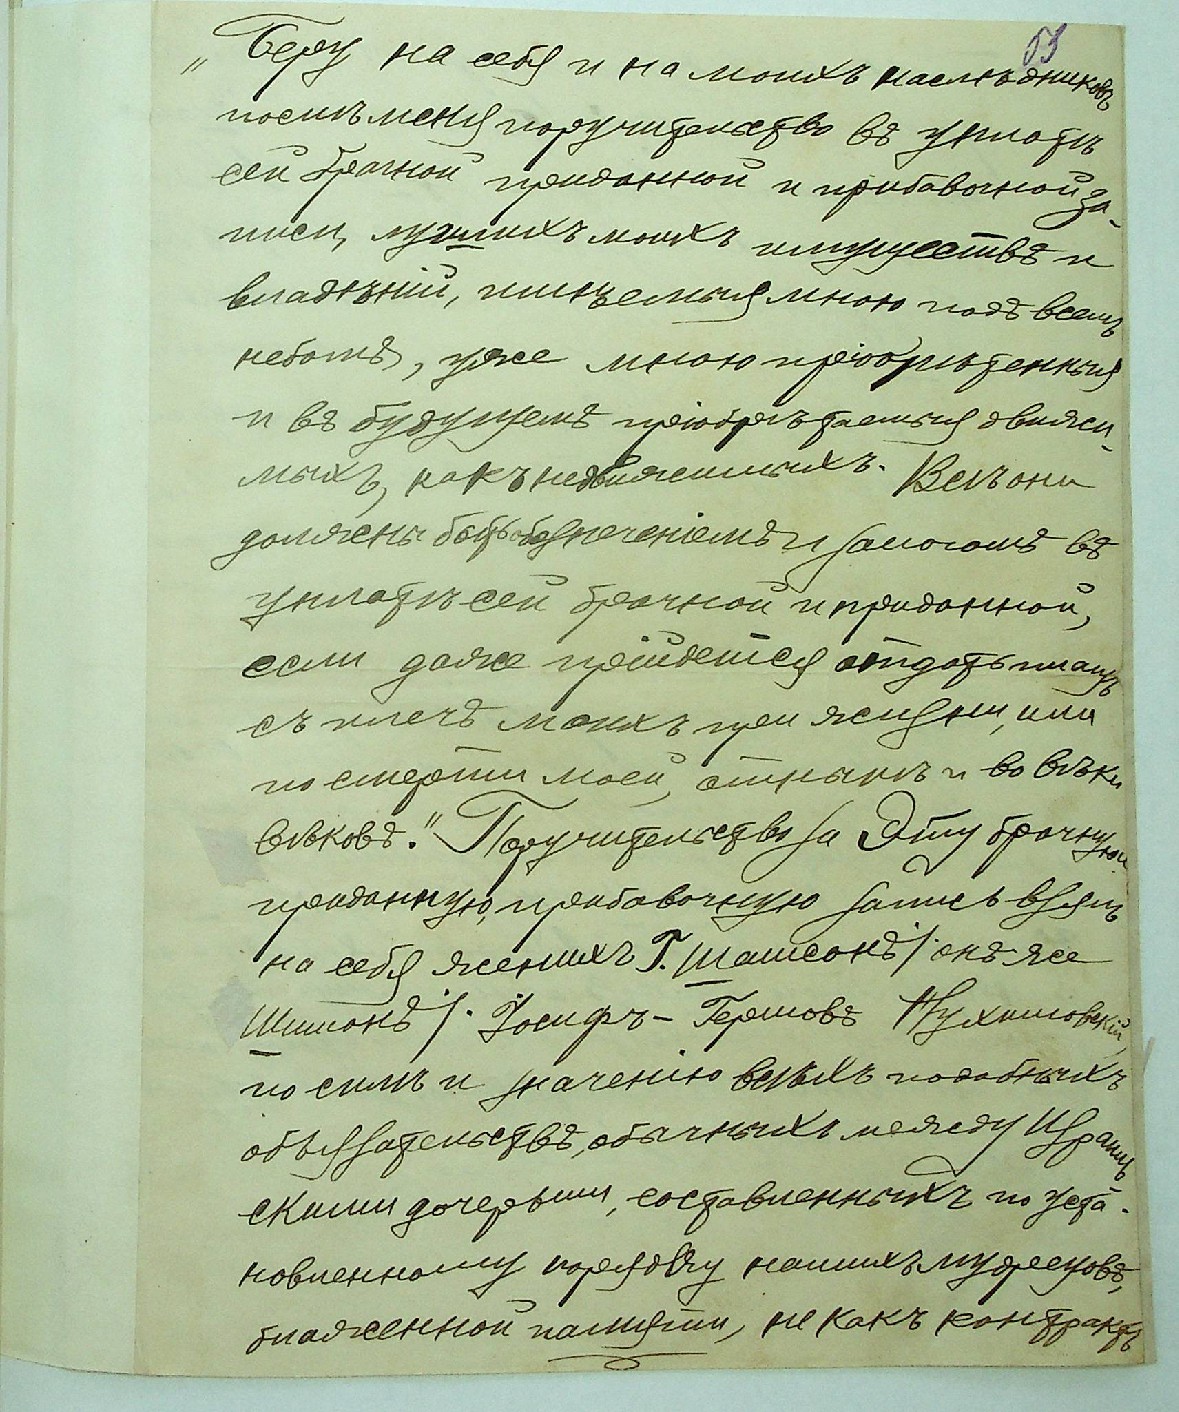 53
„Беру на себя и на моихъ наслѣдниковъ
послѣ меня поручительство въ уплатѣ
сей брачной приданной и прибавочной за-
писи, лучшихъ моихъ имуществъ и
владѣній, имѣемыя мною подъ всемъ
небомъ, уже мною пріобрѣтенныя
и въ будущемъ пріобрѣтаемыя движи-
мыхъ, какъ недвижимыхъ. Всѣ они
должены быть обезпеченіемъ и залогомъ въ
уплатѣ сей брачной и приданной,
если даже прійдется отдать плащъ
съ плечъ моихъ при жизни, или
по смерти моей, отнынѣ и во вѣки
вѣковъ." Поручительство за Эту брачную
приданную, прибавочную запись взялъ
на себя женихъ Г. Шамсонъ /: онъ же
Шимонъ /: Іосифъ - Гершовъ
по силѣ и значенію всѣхъ подобныхъ
обязательствъ, обычныхъ между Израиль
скими дочерьми, составленныхъ по уста-
новленному порядку нашихъ мудрецовъ,
блаженной памяти, не какъ контрактъ